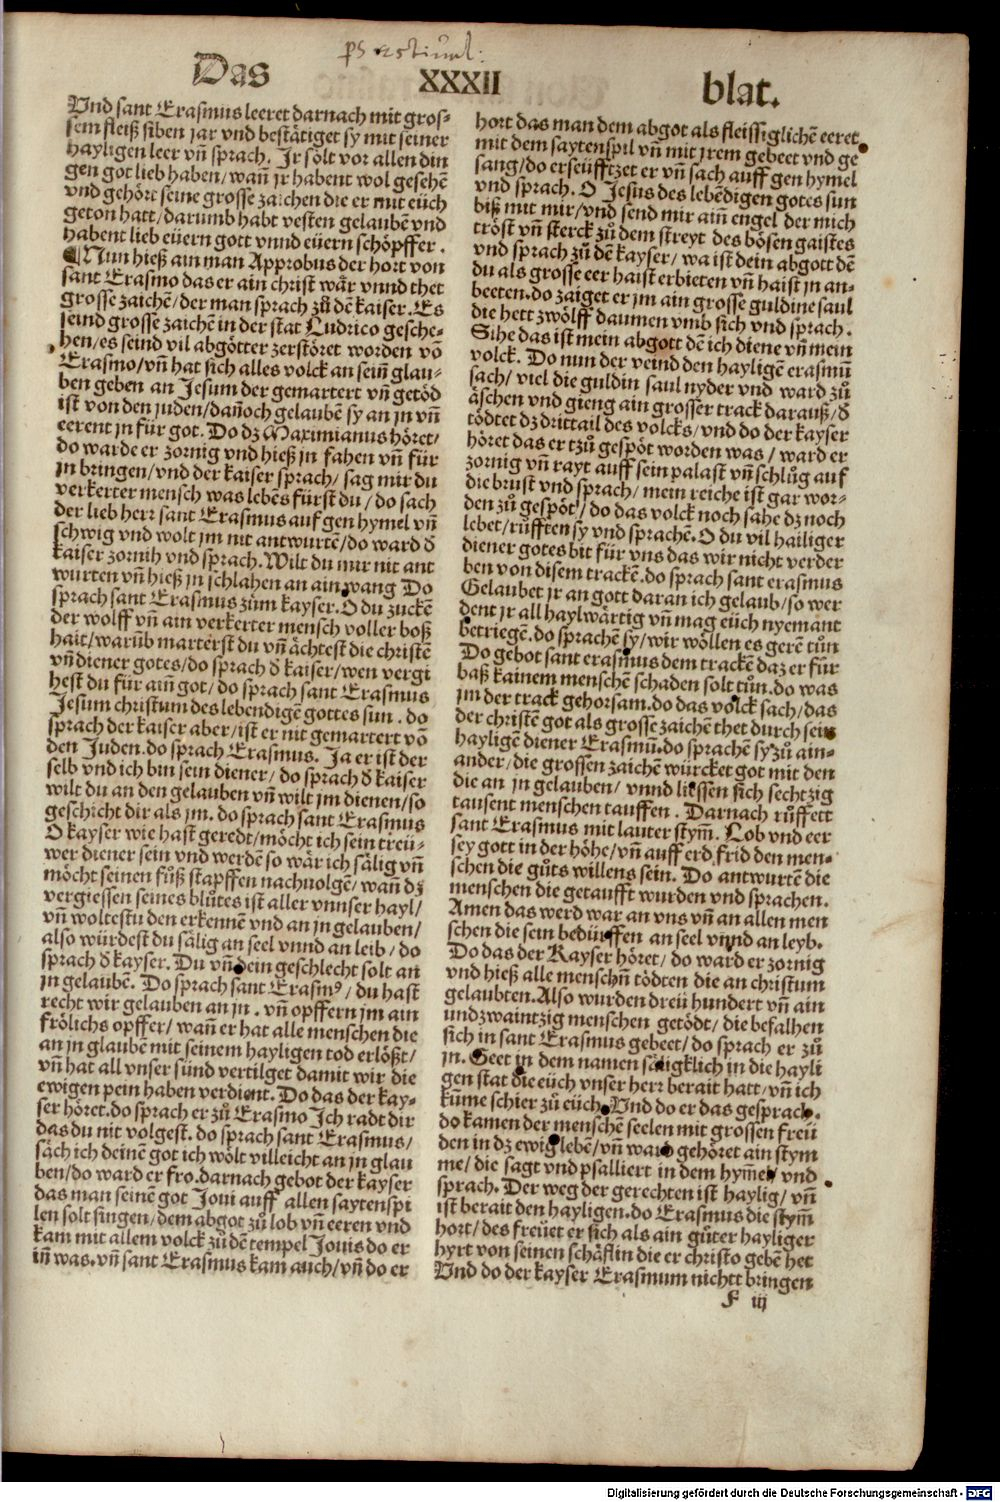 Das XXXII blat.
Vnd sant Erasmus leeret darnach mit gros-
sem fleiß siben jar vnd bestätiget sy mit seiner
hayligen leer vñ sprach. Jr sölt vor allen din
gen got lieb haben/wañ jr habent wol gesehē
vnd gehört seine grosse zaichen die er mit eüch
geton hatt/darumb habt vesten gelaubē vnd
habent lieb eüern gott vnnd eüern schöpffer.
¶Nun hieß ain man Approbus der hort von
sant Erasmo das er ain christ wär vnnd thet
grosse zaichē/der man sprach zů dē kaiser. Es
seind grosse zaichē in der stat Ludrico gesche-
hen/es seind vil abgötter zerstöret worden vō
Erasmo/vñ hat sich alles volck an sein̄ glau-
ben geben an Jesum der gemartert vñ getöd
ist von den juden/dañoch gelaubē sy an jn vñ
eerent jn für got. Do dz Maximianus höret/
do warde er zornig vnd hieß jn fahen vñ für
jn bringen/vnd der kaiser sprach/sag mir du
verkerter mensch was lebēs fürst du/do sach
der lieb herr sant Erasmus auf gen hymel vñ
schwig vnd wolt jm nit antwurtē/do ward ð
kaiser zornih vnd sprach. Wilt du mir nit ant
wurten vñ hieß jn schlahen an ain wang Do
sprach sant Erasmus zům kayser. O du zuckē
der wolff vñ ain verkerter mensch voller boß
hait/warūb marterst du vñ ächtest die christē
vñ diener gotes/do sprach ð kaiser/wen vergi
hest du für ain̄ got/do sprach sant Erasmus
Jesum christum des lebendigē gottes sun. do
sprach der kaiser aber/ist er nit gemartert vō
den Juden. do sprach Erasmus. Ja er ist der
selb vnd ich bin sein diener/do sprach ð kaiser
wilt du an den gelauben vñ wilt jm dienen/so
geschicht dir als jm. do sprach sant Erasmus
O kayser wie hast geredt/möcht ich sein treü-
wer diener sein vnd werdē so wär ich sälig vñ
möcht seinen fůß stapffen nachuolgē/wañ dz
vergiessen seines blůtes ist aller vnnser hayl/
vñ woltestu den erkennē vnd an jn gelauben/
also würdest du sälig an seel vnnd an leib/do
sprach ð kayser. Du vñ dein geschlecht solt an
jn gelaubē. Do sprach sant Erasmꝰ/du hast
recht wir gelauben an jn. vñ opffern jm ain
frölichs opffer/wañ er hat alle menschen die
an jn glaubē mit seinem hayligen tod erlößt/
vñ hat all vnser sünd vertilget damit wir die
ewigen pein haben verdient. Do das der kay-
ser höret. do sprach er zů Erasmo Ich radt dir
das du nit volgest. do sprach sant Erasmus/
säch ich deinē got ich wölt villeicht an jn glau
ben/do ward er fro. darnach gebot der kayser
das man seinē got Joui auff allen saytenspi
len solt singen/dem abgot zů lob vñ eeren vnd
kam mit allem volck zů dē tempel Jouis do er
in̄ was. vñ sant Erasmus kam auch/vñ do er
hort das man dem abgot als fleissiglichē eeret
mit dem saytenspil vñ mit jrem gebeet vnd ge
sang/do erseüfftzet er vñ sach auff gen hymel
vnd sprach. O Jesus des lebēdigen gotes sun
biß mit mir/vnd send mir ain̄ engel der mich
tröst vñ sterck zů dem streyt des bösen gaistes
vnd sprach zů dē kayser/wa ist dein abgott dē
du als grosse eer haist erbieten vñ haist jn an-
beeten. do zaiget er jm ain grosse guldine saul
die hett zwölff daumen vmb sich vnd sprach.
Sihe das ist mein abgott dē ich diene vñ mein
volck. Do nun der veind den hayligē erasmū
sach/viel die guldin saul nyder vnd ward zů
äschen vnd gieng ain grosser track darauß/ð
tödtet dz drittail des volcks/vnd do der kayser
höret das er tzů gespöt worden was/ward er
zornig vñ rayt auff sein palast vñ schlůg auf
die brust vnd sprach/mein reiche ist gar wor-
den zů gespöt/do das volck noch sahe dz noch
lebet/růfften sy vnd sprachē. O du vil hailiger
diener gotes bit für vns das wir nicht verder
ben von disem trackē. do sprach sant erasmus
Gelaubet jr an gott daran ich gelaub/so wer
dent jr all haylwärtig vñ mag eüch nyemant
betriegē. do sprachē sy/wir wöllen es gerē tůn
Do gebot sant erasmus dem trackē daz er für
baß kainem menschē schaden solt tůn. do was
jm der track gehorsam. do das volck sach/das
der christē got als grosse zaichē thet durch sein
hayligē diener Erasmū. do sprachē sy zů ain-
ander/die grossen zaichē würcket got mit den
die an jn gelauben/vnnd liessen sich sechtzig
tausent menschen tauffen. Darnach růffett
sant Erasmus mit lauter stym̄. Lob vnd eer
sey gott in der höhe/vñ auff erd frid den men-
schen die gůts willens sein. Do antwurtē die
menschen die getaufft wurden vnd sprachen.
Amen das werd war an vns vñ an allen men
schen die sein bedürffen an seel vnnd an leyb.
Do das der Kayser höret/do ward er zornig
vnd hieß alle menschn̄ tödten die an christum
gelaubten. Also wurden dreü hundert vñ ain
undzwaintzig menschen getödt/die befalhen
sich in sant Erasmus gebeet/do sprach er zů
jn. Geet in dem namen säligklich in die hayli
gen stat die eüch vnser herr berait hatt/vñ ich
kūme schier zů eüch. Vnd do er das gesprach.
do kamen der menschē seelen mit grossen freü
den in dz ewig lebē/vñ ward gehöret ain stym
me/die sagt vnd psalliert in dem hym̄el/vnd
sprach. Der weg der gerechten ist haylig/vñ
ist berait den hayligen. do Erasmus die stym̄
hort/des freüet er sich als ain gůter hayliger
hyrt von seinen schäflin die er christo gebē het
Vnd do der kayser Erasmum nichtt bringen
F iij
Digitalisierung gefördert durch die Deutsche Forschungsgemeinschaft - DFG